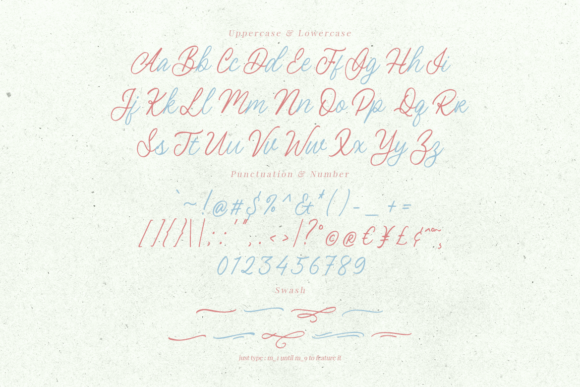 Uppercase & Lowercase
Aa Bb Cc Dd Ee Ff Gg Hh Ii
Jj Kk Ll Mm Nn Oo Pp Qq Rr
Ss Tt Uu Vv Ww Xx Yy Zz
Punctuation & Number
` ~ ! @ # $ % ^ & * ( ) - _ + =
0123456789
Swash